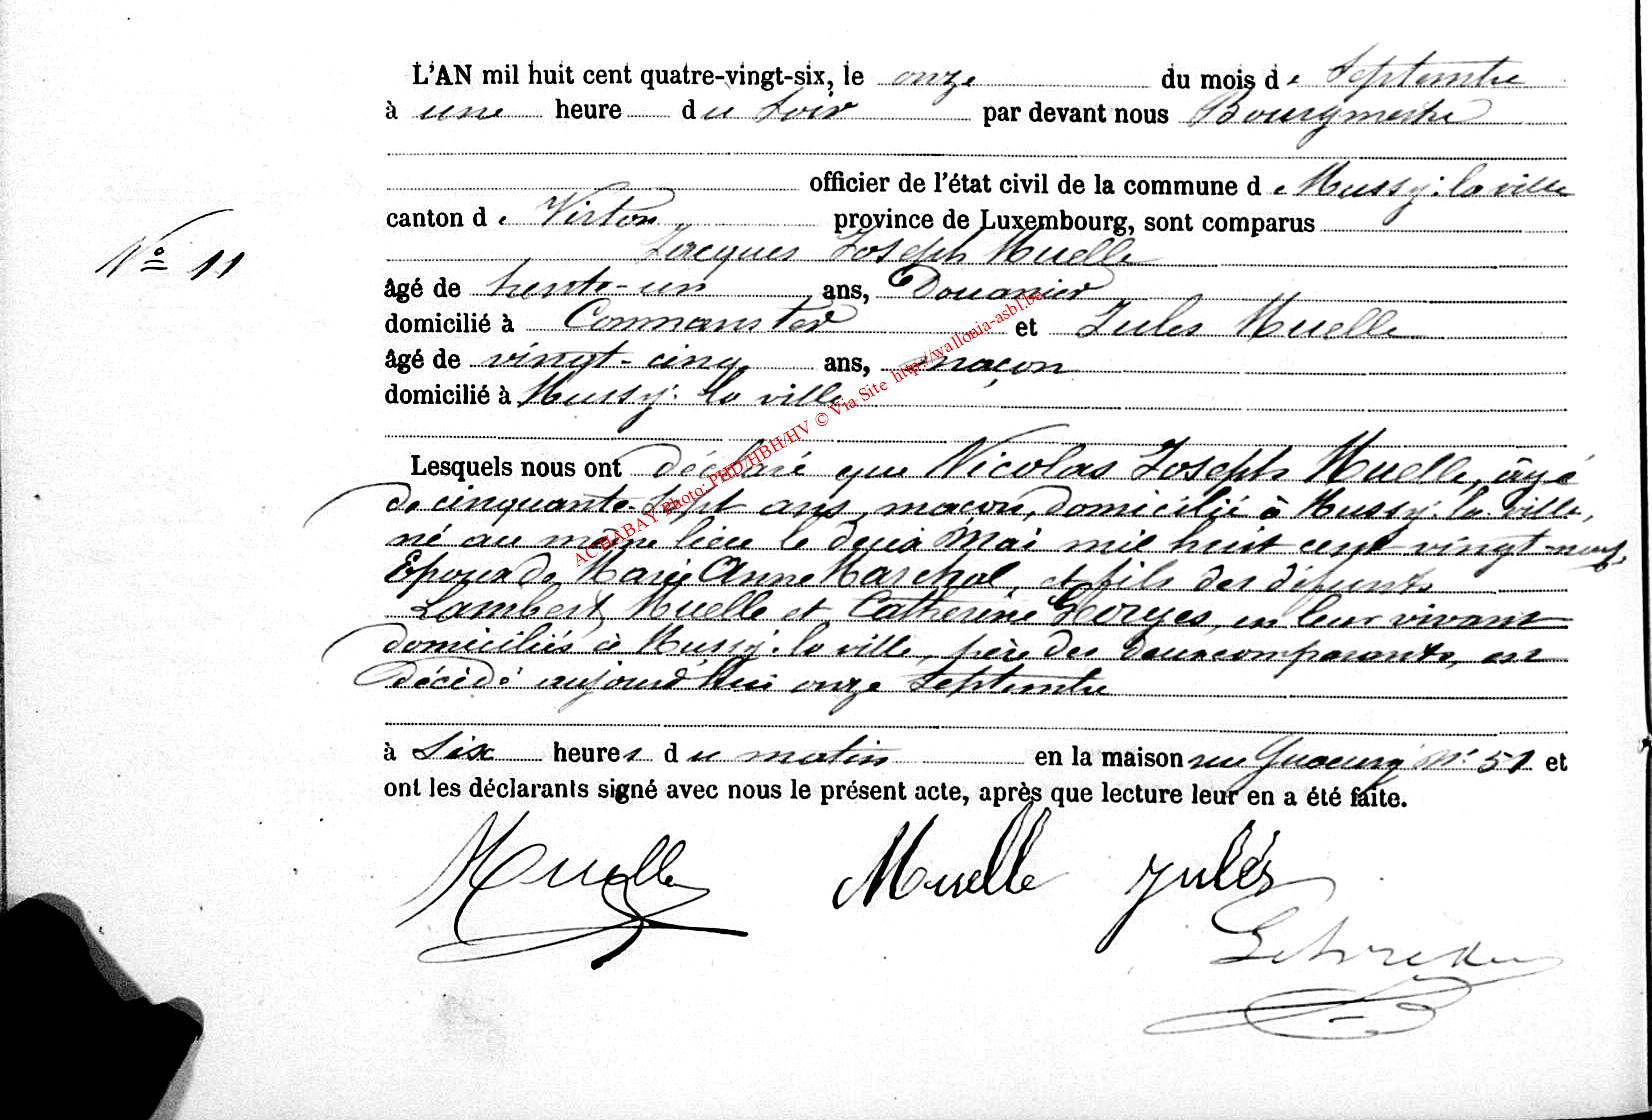 L'AN mil huit cent quatre-vingt-six, le onze du mois de Septembre
à une heure du Soir par devant nous Bourgmestre
officier de l'état civil de la commune de Mussy-la-ville
N° 11
canton de Virton province de Luxembourg, sont comparus
Jacques Joseph Muelle
âgé de trente-un ans, Douanier
domicilié à Commanster et Jules Muelle
âgé de vingt-cinq ans, maçon
domicilié à Mussy-la ville
Lesquels nous ont déclaré que Nicolas Joseph Muelle, âgé
de cinquante-sept ans, maçon, domicilié à Mussy-la-ville,
né au même lieu le deux Mai mil huit cent vingt-neuf,
Epoux de Marie Anne Marchal, et fils des défunts
Lambert Muelle et Catherine Georges, en leur vivant
domiciliés à Mussy-la ville, père des deux comparants, est
décédé aujourd'hui onze Septembre
à Six heures du matin en la maison rue N° 51 et
ont les déclarants signé avec nous le présent acte, après que lecture leur en a été faite.
Muelle Muelle Jules
ACHABAY Photo: PHD/HBH/HV © Via Site http://wallonia-asbl.be